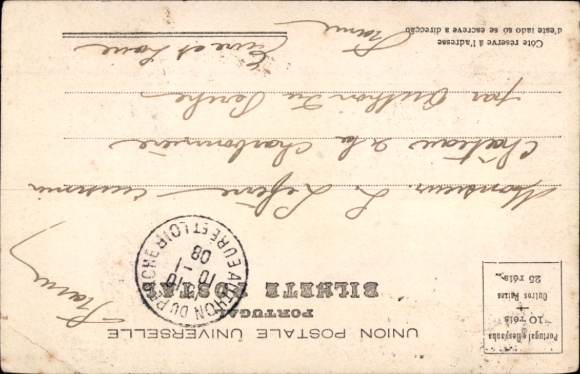 UNION POSTALE UNIVERSELLE
PORTUGAL
BILHETE POSTAL
Portugal e Hespanha
10 réis
+
Outros Paizes
25 réis
AUTHON DU PERCHE
10 - 1
08
EURE ET LOIR
France
Monsieur L. Lefèvre
Château de la Charbonnière
par Authon du Perche
Eure et Loire
France
Côte réservé à l'adresse
d'este lado só se escreve a direcção